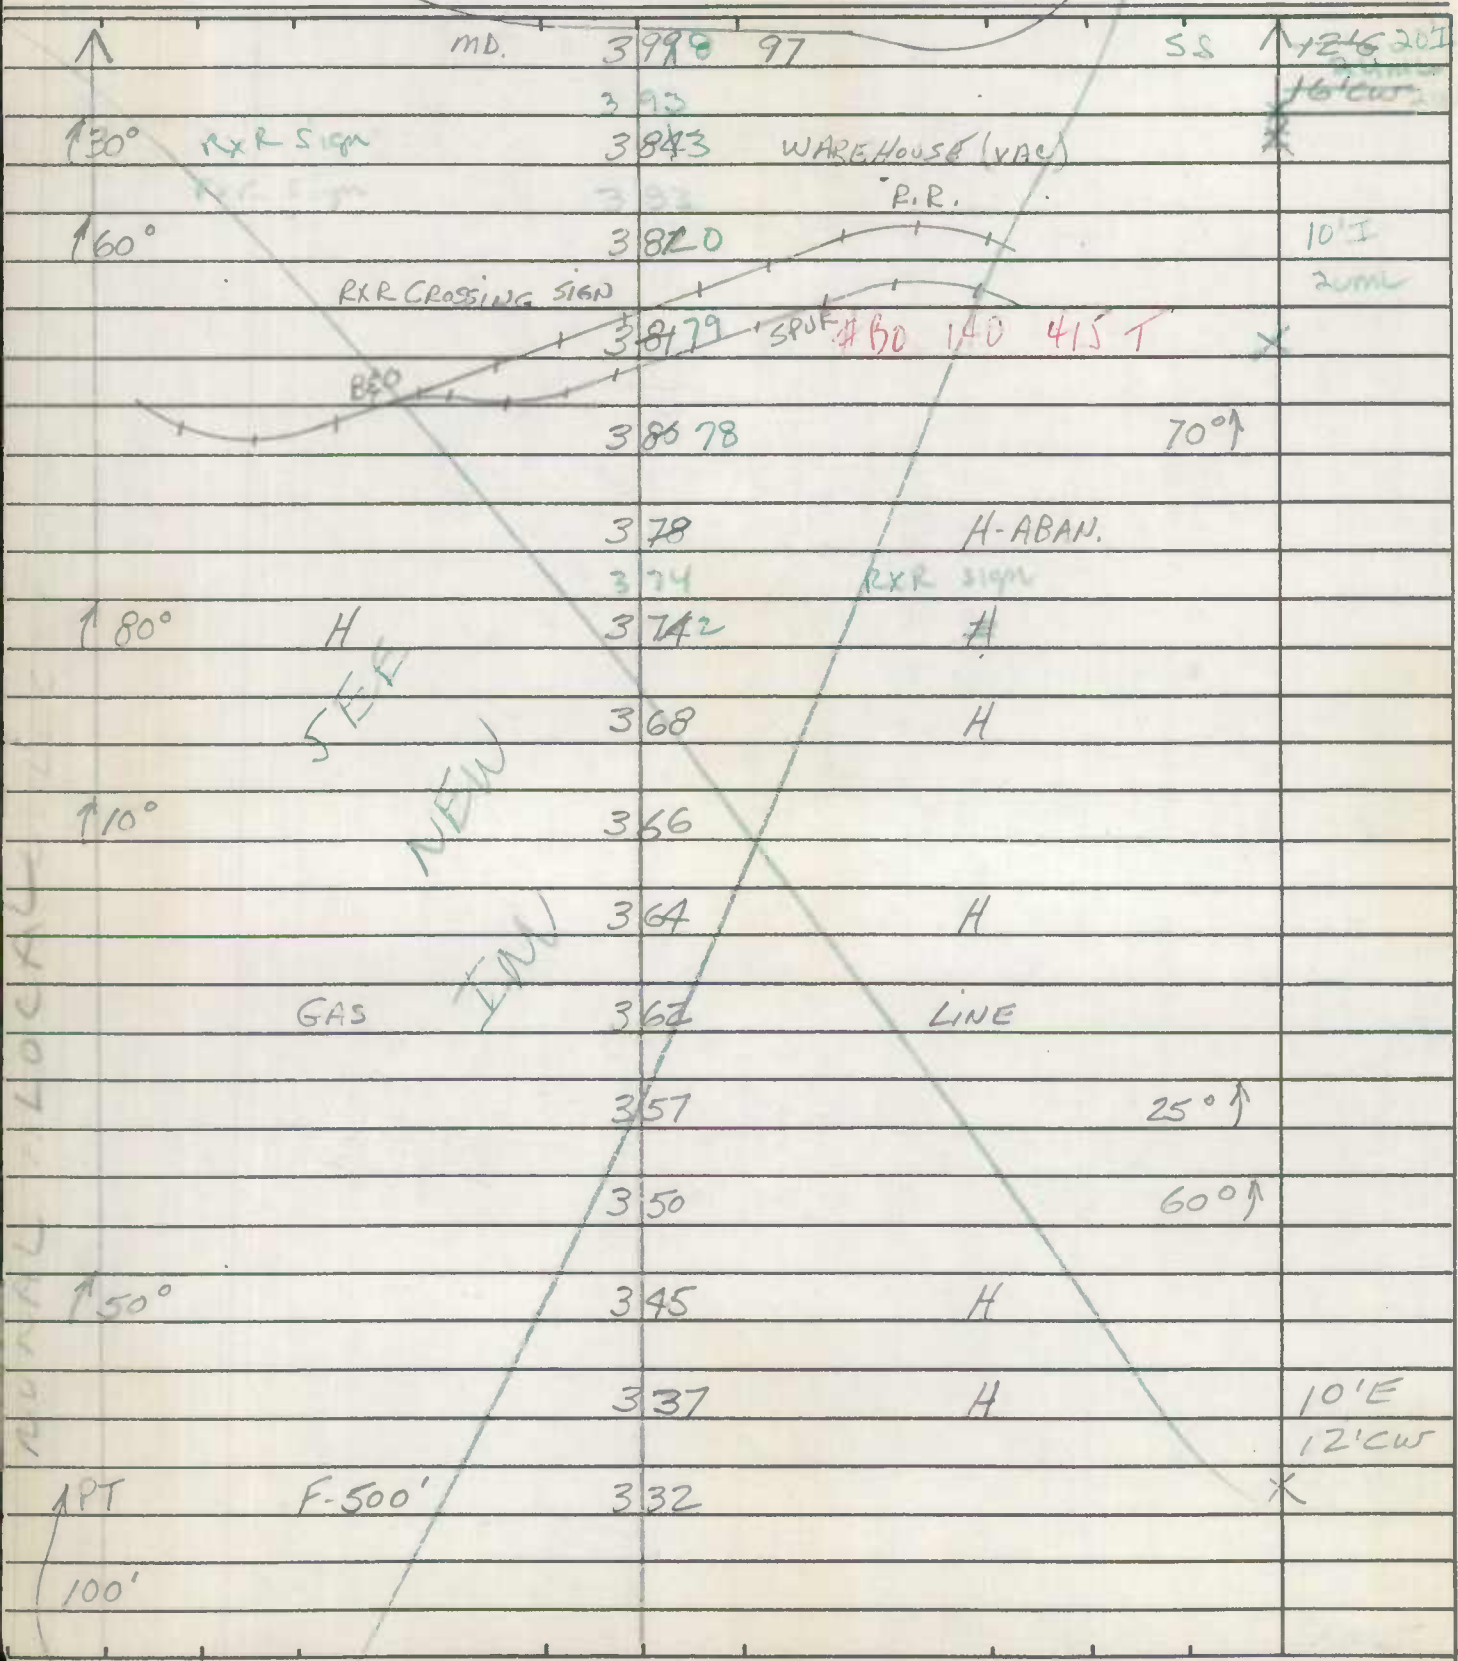 MD. 3 998 97 SS 12'G 20'I
3 93 16'CW
30° RxR Sign 3 843 WAREHOUSE (VAC)
RxR Sign 3 83 R.R.
60° 3 820 10'I
RXR CROSSING SIGN
3 8179 SPUR #BO 140 415 T
B&O
3 80 78 70°
3 78 H-ABAN.
3 74 RXR sign
80° H 3 742 H
SEE
3 68 H
NEW
10° 3 66
3 64 H
INV
GAS 3 62 LINE
3 57 25°
3 50 60°
50° 3 45 H
3 37 H 10'E
12'CW
PT F-500' 3 32 X
100'
RURAL - LOCAL